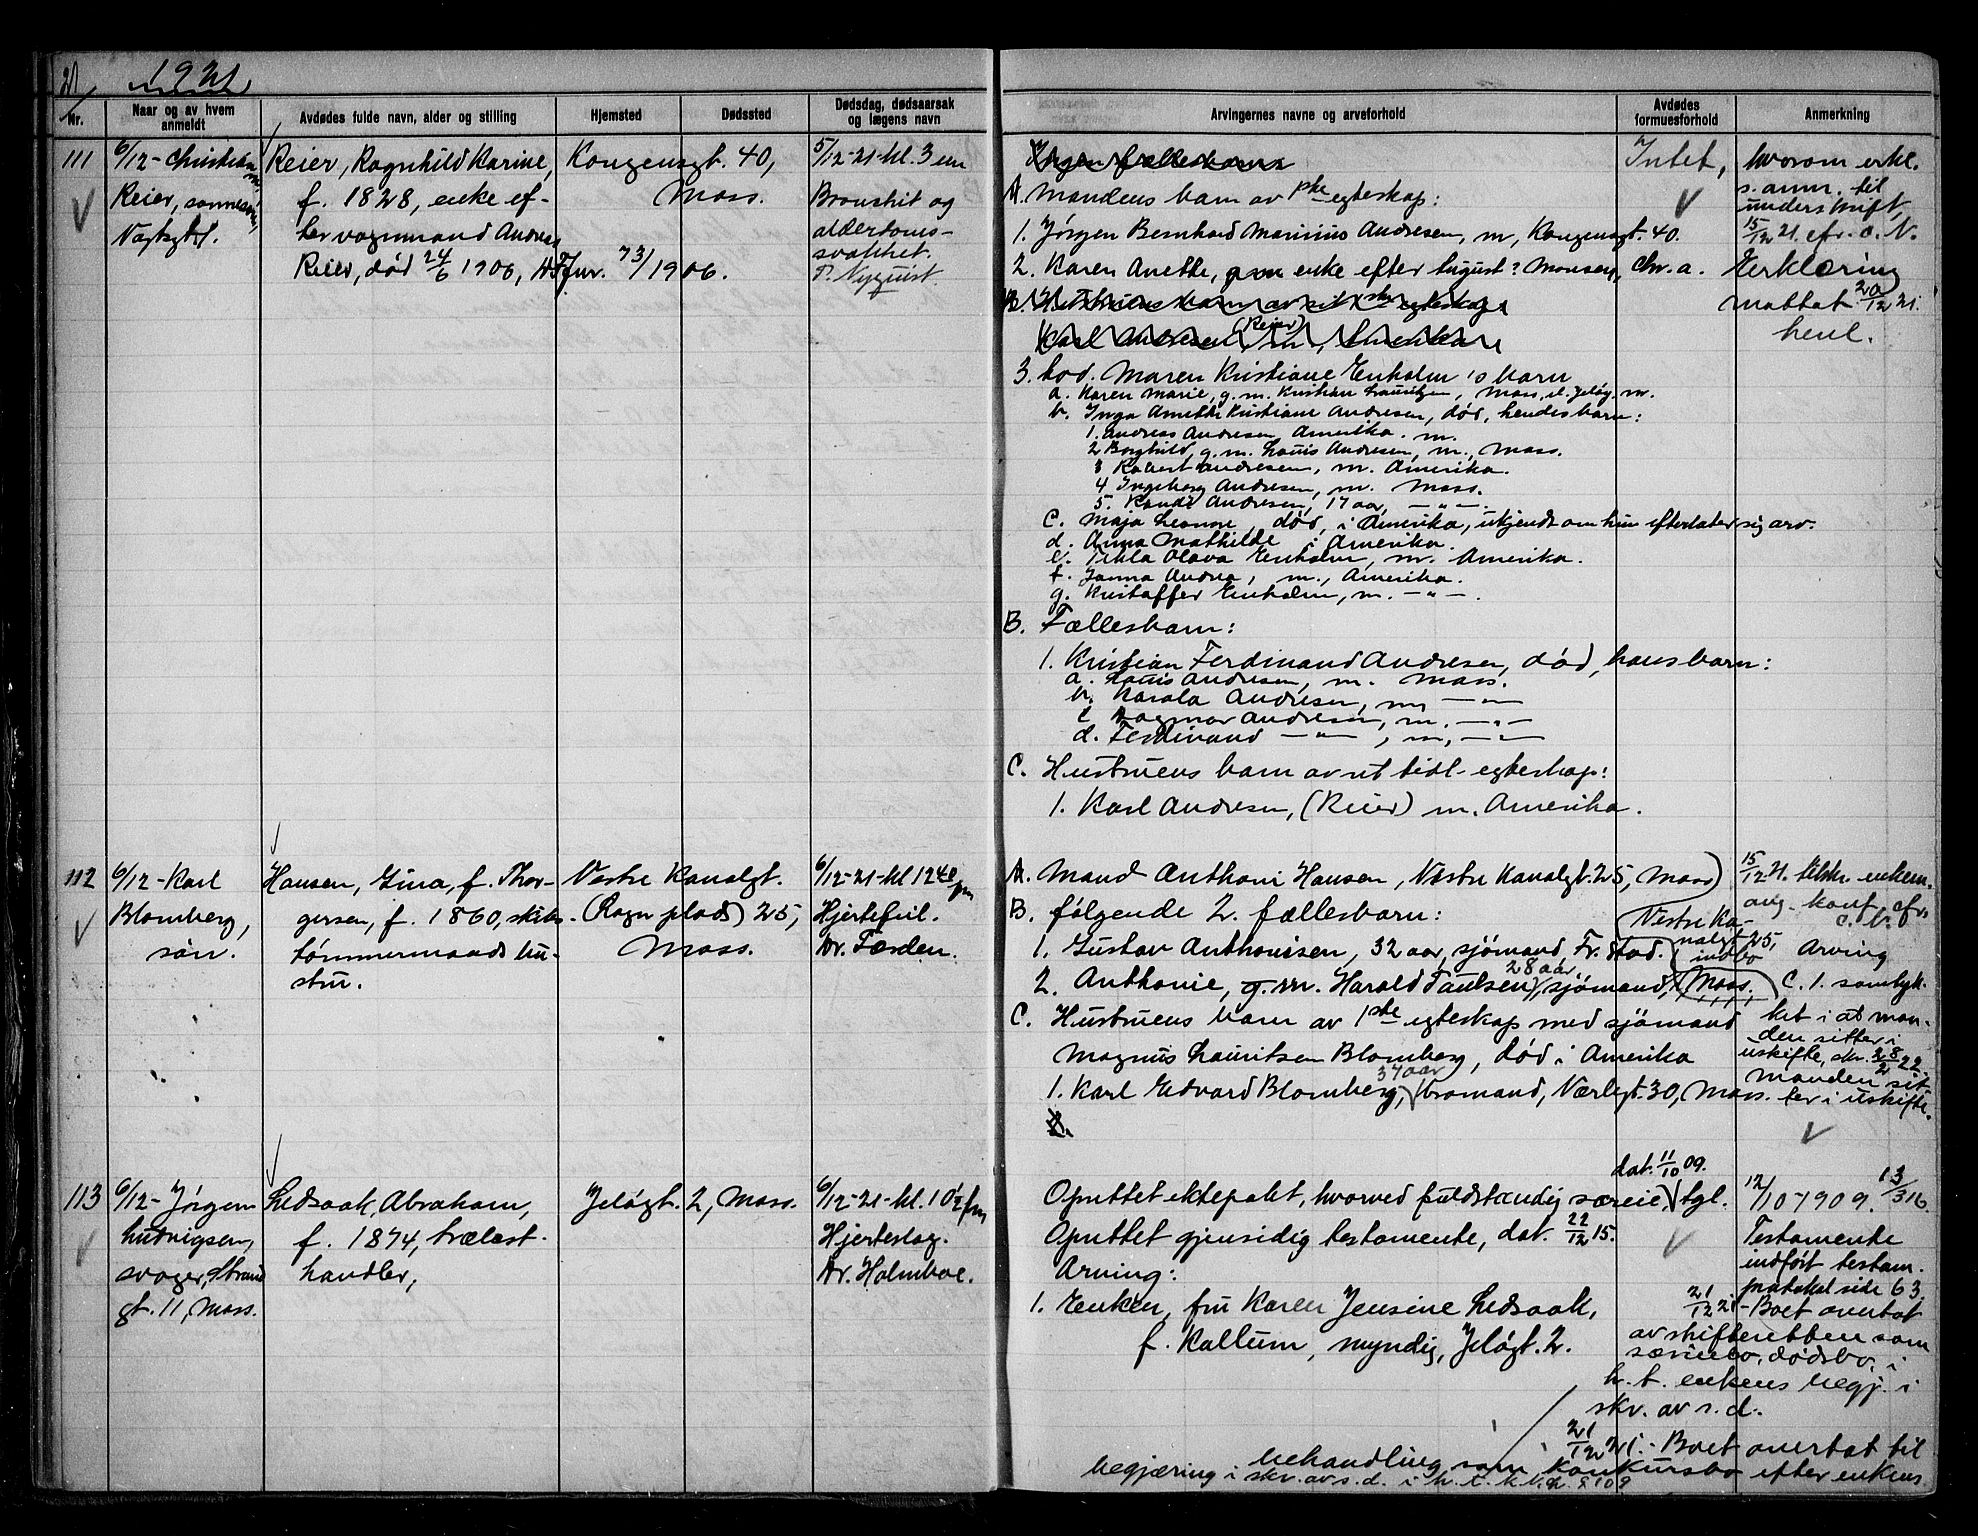 21 1921
Nr.
Naar og av hvem anmeldt
Avdødes fulde navn, alder og stilling
Hjemsted
Dødssted
Dødsdag, dødsaarsak og lægens navn
Arvingernes navne og arveforhold
Avdødes formuesforhold
Anmerkning
111
6/12 - Christian
Reier, sønnesøn,
Vogtsgt.
Reier, Ragnhild Karine,
f. 1828, enke ef-
ter vognmand Andreas
Reier, død 24/6 1906,
73/1906.
Kongensgt. 40,
Moss.
5/12-21-kl. 3 em
Bronchit og
alderdoms-
svakhet.
Dr. Nyquist.
Ingen fællesbarn
A. Mandens barn av 1ste egteskap:
1. Jørgen Bernhard Marinius Andresen, m, Kongensgt. 40.
2. Karen Anette, enke efter August? Monsen, Chr.a.
B. Hustruens barn av sit 1ste egteskap,
Karl Andresen (Reier), m, Amerika,
3. Fod. Maren Kristiane Enholm's barn
a. Karen Marie, g. m. Kristian Lauritzen, Moss, Jeløy, m.
b. Inga Amethe Kristiane Andresen, død, hendes barn:
1. Andreas Andresen Amerika. m.
2 Borghild, g. m. Louis Andresen, m., Moss.
3 Robert Andresen, m. Amerika.
4 Ingeborg Andresen, m. Moss.
5. Randi Andresen, 17 aar, — " —.
C. Maja Leonore, død, i Amerika, ukjendt om hun efterlater sig arv.
d. Anna Mathilde i Amerika.
e. Tekla Olava Enholm, m. Amerika.
f. Janna Andrea, m., Amerika.
g. Kristoffer Enholm, m. — " —.
B. Fællesbarn:
1. Kristian Ferdinand Andresen, død, hans barn:
a. Louis Andresen, m. Moss.
b. Karola Andresen, m — " —
c Dagmar Andresen, m. — " —
d. Ferdinand — " —, m, — " —
C. Hustruens barn av et tidl. egteskap:
1. Karl Andresen, (Reier) m. Amerika.
Intet,
hvorom erkl.
s. anm. til
underskrift,
15/12 21. cfr. c. V.
Erklæring
mottat 20/12 21.
henl.
112
6/12 - Karl
Blomberg,
søn.
Hansen, Gina, f. Thor-
gersen, f. 1860, skibs-
tømmermands hu-
stru.
Vestre Kanalgt.
(Ragn plads) 25,
Moss.
6/12-21-kl 12 40 fm
Hjertefeil.
Dr. Færden.
A. Mand Anthoni Hansen, Vestre Kanalgt. 25, Moss
B. følgende 2. fællesbarn:
1. Gustav Anthonisen, 32 aar, sjømand, Fr.stad.
2. Anthonie, g. m. Harald Paulsen, 28 aar, sjømand, Moss.
C. Hustruens barn av 1ste egteskap med sjømand
Magnus Lauritsen Blomberg, død i Amerika
1. Karl Edvard Blomberg, 37 aar, bromand, Værlegt. 30, Moss.
Vestre Ka-
nalgt 25,
indbo
15/12 21. tilskr. enkem.
ang. konf. cfr.
c. V.
Arving
C. 1. samtyk-
ket i at man-
den sitter i
uskifte, skr. 28/2 22.
Manden sit-
ter i uskifte.
113
6/12 - Jørgen
Ludvigsen,
svoger, Strand
gt. 11, Moss.
Ledsaak, Abraham,
f. 1874, trælast-
handler,
Jeløgt. 2, Moss.
6/12-21-kl. 10 1/2 fm
Hjerteslag.
Dr. Holmboe.
Oprettet ektepakt, hvorved fuldstændig særeie, dat. 11/10 09. tgl.
Oprettet gjensidig testamente, dat. 22/12 15.
Arving:
1. Enken, fru Karen Jensine Ledsaak,
f. Kallum, myndig, Jeløgt. 2.
12/10 1909. 13/316.
Testamente
indført testam.
protokol side 63.
21/12 21 - Boet overtat
av skifteretten som
særeiebo, dødsbo, i
h. t. enkens begj. i
skr. av s. d.
21/12 21. - Boet overtat til
behandling som konkursbo efter enkens
begjæring i skr. av s. d. i h. t. k. l. § 109